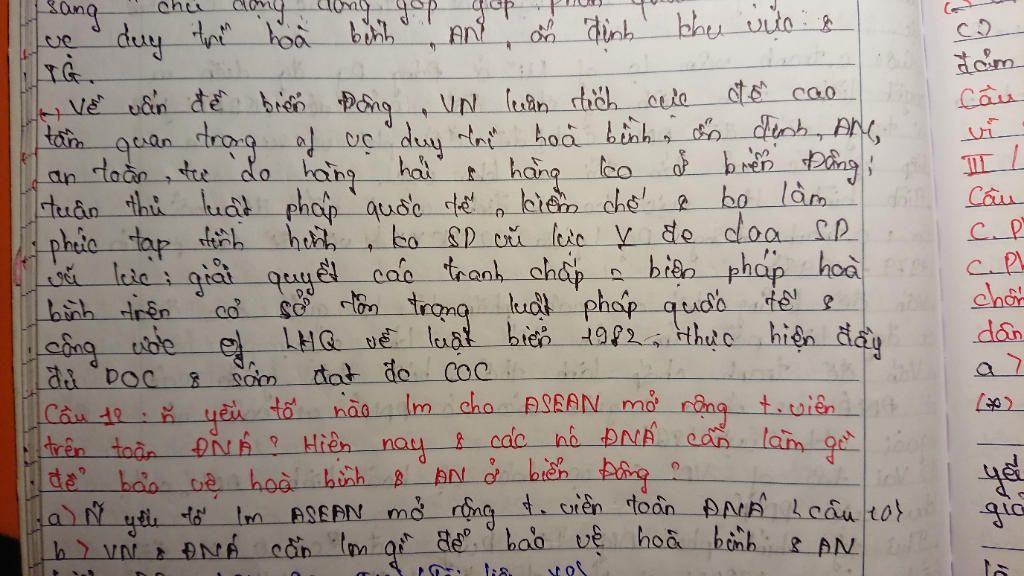 sang chủ động đóng góp góp phần
vc duy trì hoà bình, AN, ổn định khu vực &
TG.
(+) Về vấn đề biển Đông, VN luôn tích cực đề cao
tầm quan trọng of vc duy trì hoà bình, ổn định, AN,
an toàn, tự do hàng hải & hàng ko ở biển Đông;
tuân thủ luật pháp quốc tế, kiềm chế & ko làm
phức tạp tình hình, ko SD vũ lực V đe doạ SD
vũ lực; giải quyết các tranh chấp = biện pháp hoà
bình trên cơ sở tôn trọng luật pháp quốc tế &
công ước of LHQ về luật biển 1982, thực hiện đầy
đủ DOC & sớm đạt đc COC
Câu 12: ~ yếu tố nào lm cho ASEAN mở rộng t.viên
trên toàn ĐNÁ? Hiện nay & các nc ĐNÁ cần làm gì
để bảo vệ hoà bình & AN ở biển Đông?
a) ~ yếu tố lm ASEAN mở rộng t.viên toàn ĐNÁ (câu 10)
b) VN & ĐNÁ cần lm gì để bảo vệ hoà bình & AN
c)
đảm
Câu
vì
III
Câu
C. P
C. Ph
chốn
dân
a)
(*)
yế
giả
là